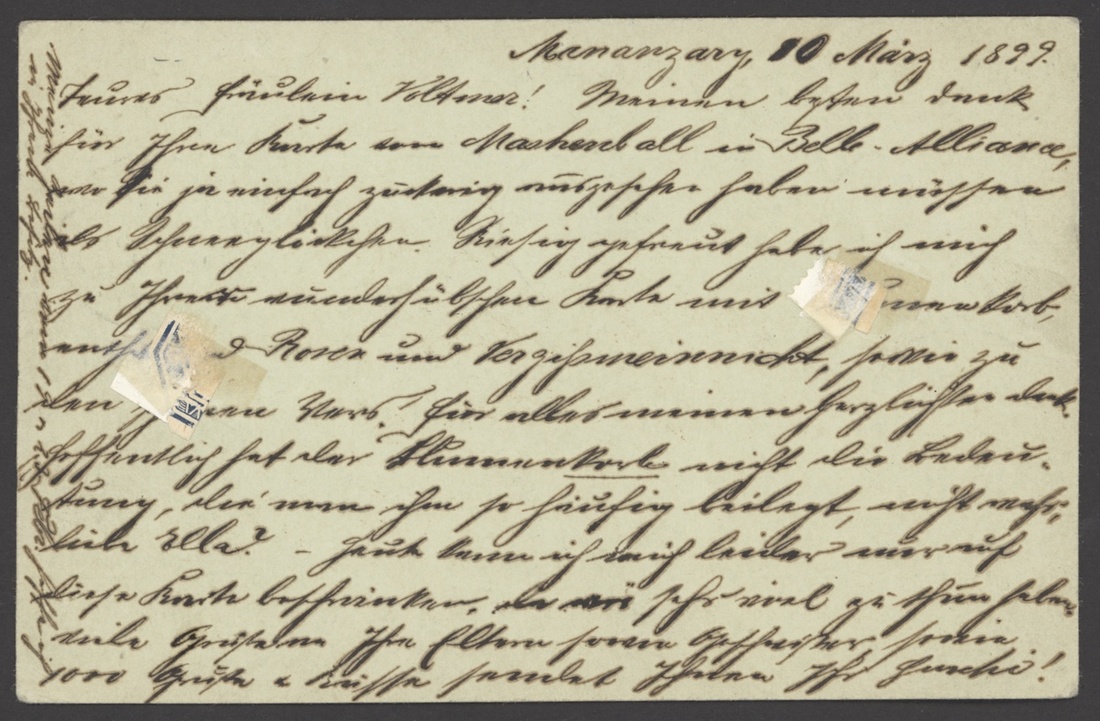 Mananzary, 10 März 1899.
Teures Fräulein Voltmer! Meinen besten Dank
für Ihre Karte vom Maskenball in Belle-Alliance,
wo Sie ja einfach ausgesehen haben müssen
als Schneeglöckchen. Riesig gefreut habe ich mich
zu Ihrer wunderhübschen Karte mit menkorb,
d Rosen und Vergissmeinnicht, sowie zu
den en Vers. Für alles meinen herzlichsten Dank.
Hoffentlich hat der Blumenkorb nicht die Bedeu-
tung, die man ihm so häufig beilegt, nicht wahr,
liebe Ella? – Heute kann ich mich leider nur auf
diese Karte beschränken, da wir sehr viel zu thun haben.
Viele Grüsse an Ihre Eltern sowie Geschwister, sowie
1000 Grüsse & Küsse sendet Ihnen Ihr